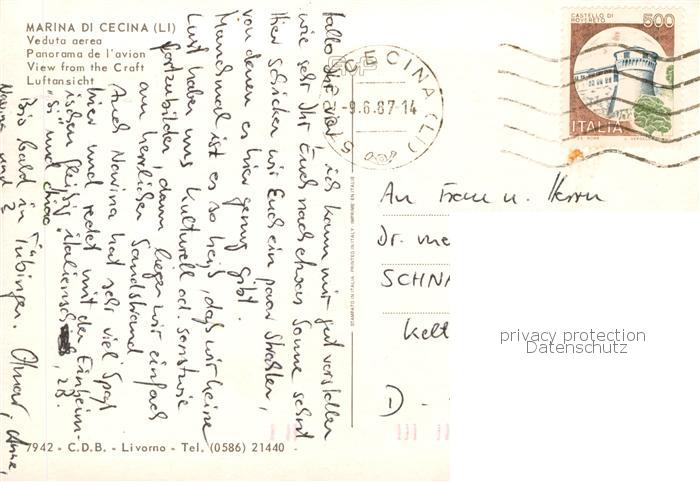 MARINA DI CECINA (LI)
Veduta aerea
Panorama de l'avion
View from the Craft
Luftansicht
CECINA (LI)
-9.6.87-14
CASTELLO DI
ROVERETO
500
ITALIA
Hallo Ihr zwei, ich kann mir gut vorstellen
wie sehr Ihr Euch nach etwas Sonne sehnt
Hier schicken wir Euch ein paar Strahlen,
von denen es hier genug gibt.
Manchmal ist es so heiß, daß wir keine
Lust haben uns kulturell od. sonstwie
fortzubilden, dann liegen wir einfach
am herrlichen Sandstrand
Auch Navina hat sehr viel Spaß
hier und redet mit den Einheim-
ischen fleißig italienisch, z.B.
"si" und ciao"
Bis bald in Tübingen. Otmar, Anne,
Navina und ?
An Frau u. Herrn
Dr. me
SCHNA
Kelt
D -
privacy protection
Datenschutz
7942 - C.D.B. - Livorno - Tel. (0586) 21440 -